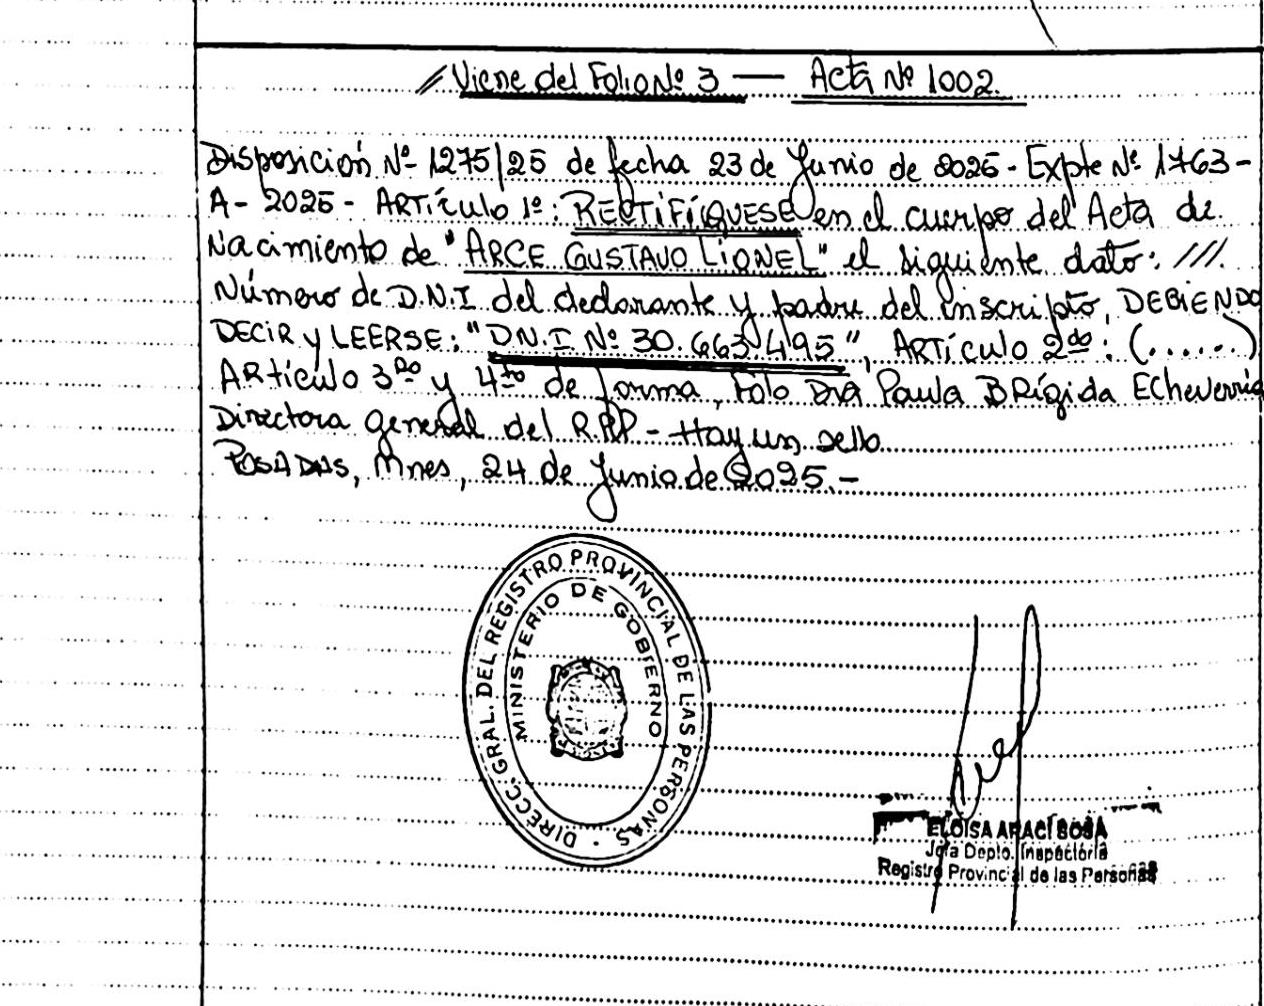 // Viene del Folio Nº 3 — Acta Nº 1002.
Disposición Nº 1275/25 de fecha 23 de Junio de 2025 - Expte Nº 1763-
A- 2025 - ARTÍCULO 1º: RECTIFÍQUESE en el cuerpo del Acta de
Nacimiento de "ARCE GUSTAVO LIONEL" el siguiente dato: ///.
Número de D.N.I del declarante y padre del inscripto, DEBIENDO
DECIR y LEERSE: "D.N.I. Nº 30.663.495", ARTÍCULO 2do: (.....)
ARtículo 3ro y 4to de forma, Fdo Dra Paula BRígida Echeverria
Directora general del R.P.P - Hay un sello
POSADAS, Mnes, 24 de Junio de 2025.-
DIRECC. GRAL. DEL REGISTRO PROVINCIAL DE LAS PERSONAS
MINISTERIO DE GOBIERNO
ELOISA ARACI SOSA
Jefa Depto. Inspectoria
Registro Provincial de las Personas